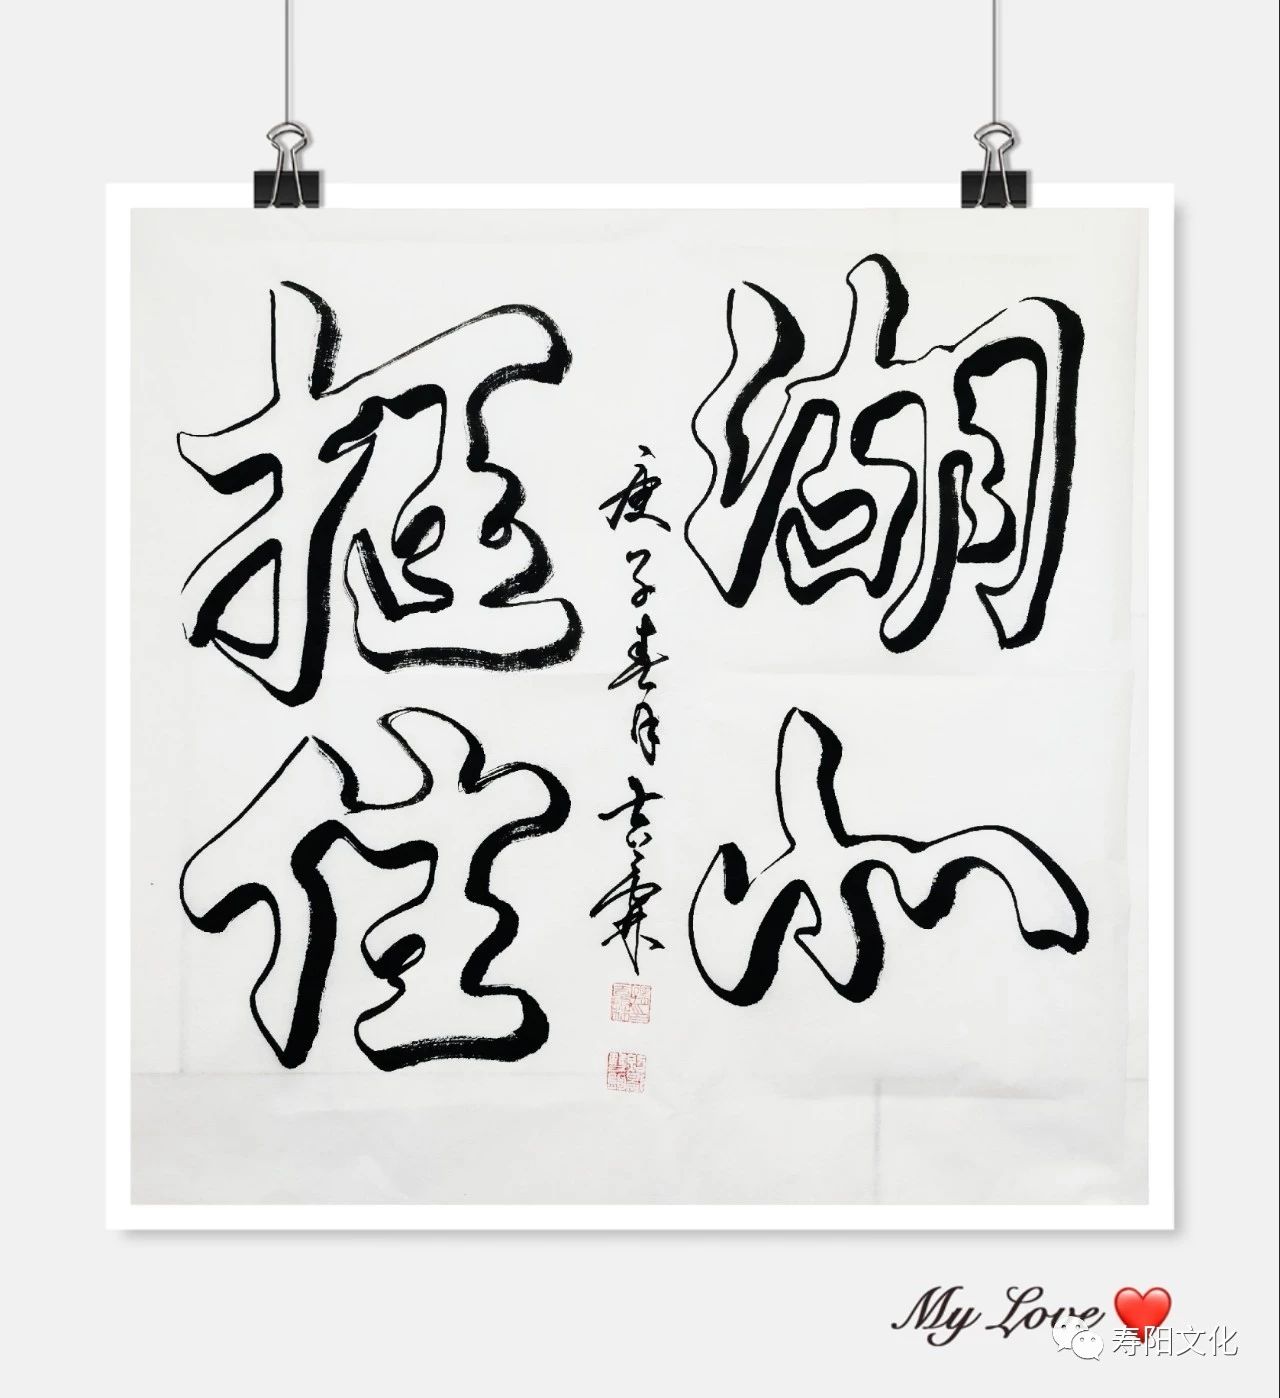 湖山
佳
庚子春月吉霖
My Love
寿阳文化